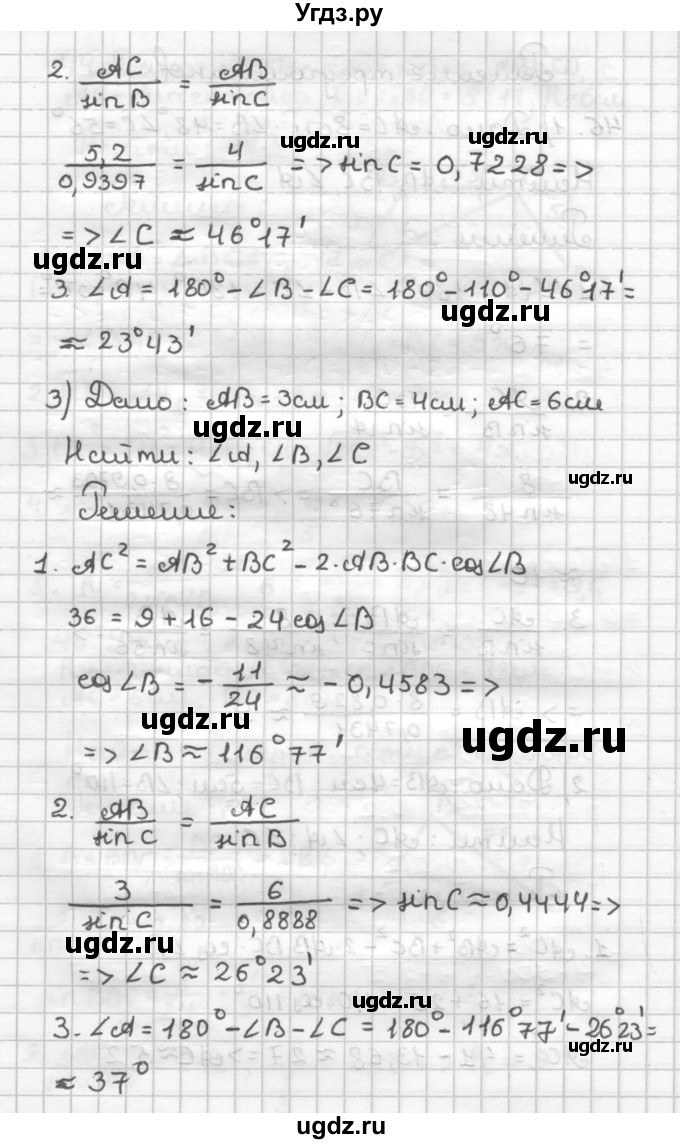 Угдз.ру
2. AC/sin B = AB/sin C
ugdz.ru ugdz.ru
5,2/0,9397 = 4/sin C => sin C = 0,7228 =>
=> ∠C ≈ 46°17'
ugdz.ru
3. ∠A = 180° - ∠B - ∠C = 180° - 110° - 46°17' =
ugdz.ru
≈ 23°43'
3) Дано: AB = 3см; BC = 4см; AC = 6см
ugdz.ru
Найти: ∠A, ∠B, ∠C
ugdz.ru
Решение:
1. AC² = AB² + BC² - 2·AB·BC·cos∠B
36 = 9 + 16 - 24 cos∠B
cos∠B = - 11/24 ≈ - 0,4583 =>
ugdz.ru ugdz.ru
=> ∠B ≈ 116°77'
2. AB/sin C = AC/sin B
3/sin C = 6/0,8888 => sin C ≈ 0,4444 =>
ugdz.ru
=> ∠C ≈ 26°23'
ugdz.ru
3. ∠A = 180° - ∠B - ∠C = 180° - 116°77' - 26°23' =
ugdz.ru
≈ 37°
ugdz.ru